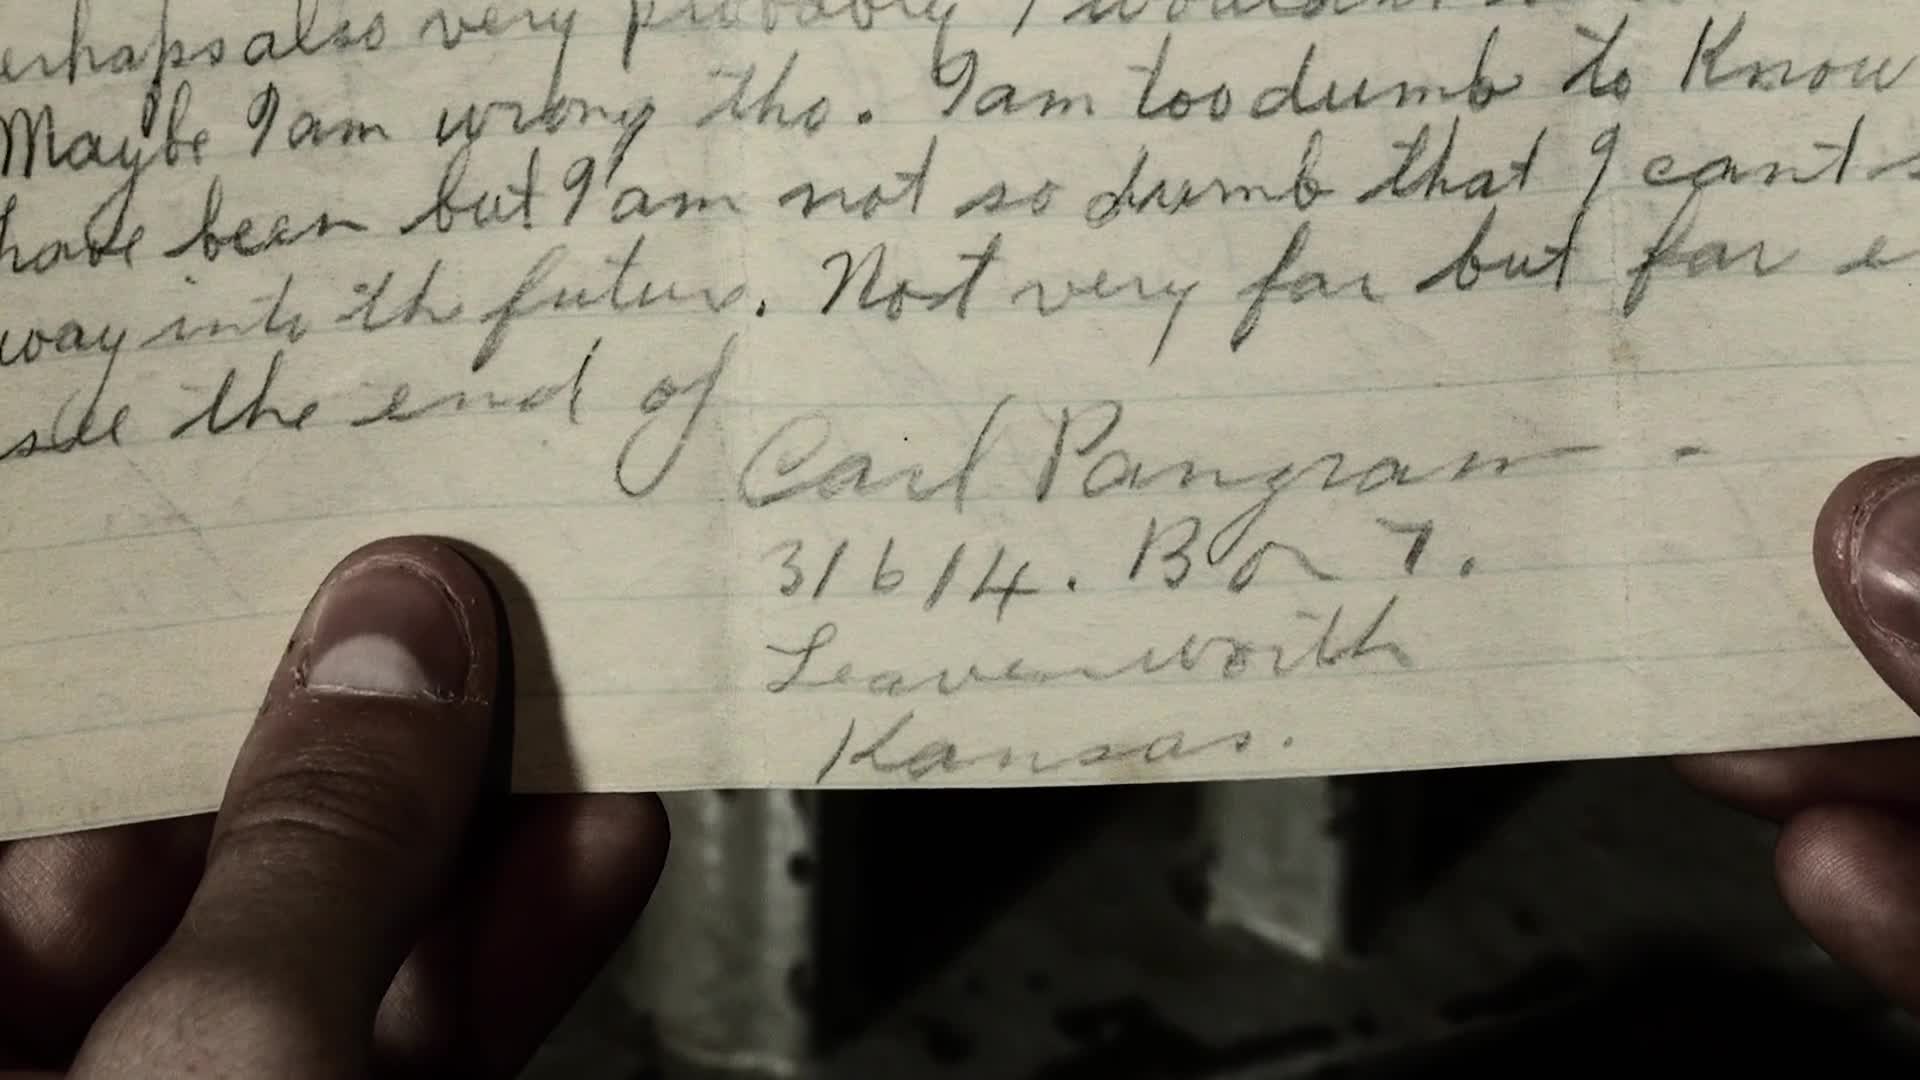 erhaps also very probably I would
Maybe I am wrong tho. I am too dumb to Know
have been but I am not so dumb that I cant s
way into the future. Not very far but far e
see the end of
Carl Panzram -
31614. Box 7.
Leavenworth
Kansas.